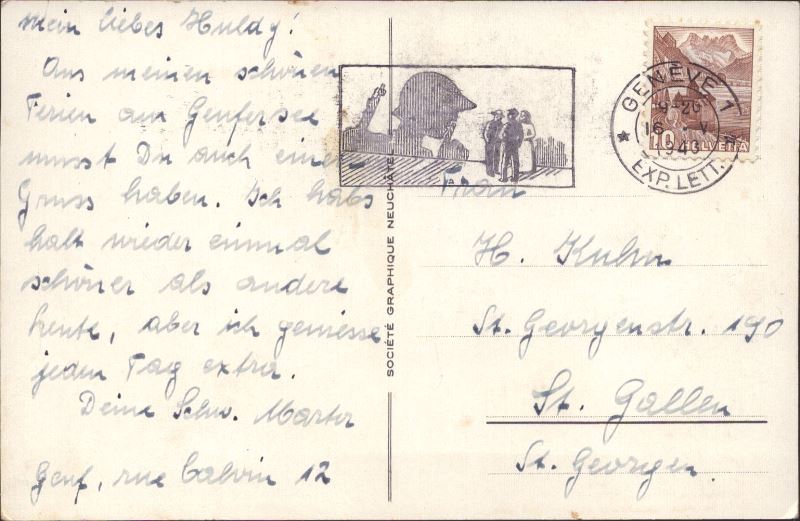 Mein liebes Huldy!
Aus meinen schönen
Ferien am Genfersee
musst Du auch einen
Gruss haben. Ich habs
halt wieder einmal
schöner als andere
heute, aber ich geniesse
jeden Tag extra.
Deine Schw. Martha
Genf, rue Calvin 12
SOCIÉTÉ GRAPHIQUE NEUCHÂTEL
GENÈVE 1
16 V
1940
EXP. LETT.
10 HELVETIA
Frau
H. Kuhn
St. Georgenstr. 190
St. Gallen
St. Georgen